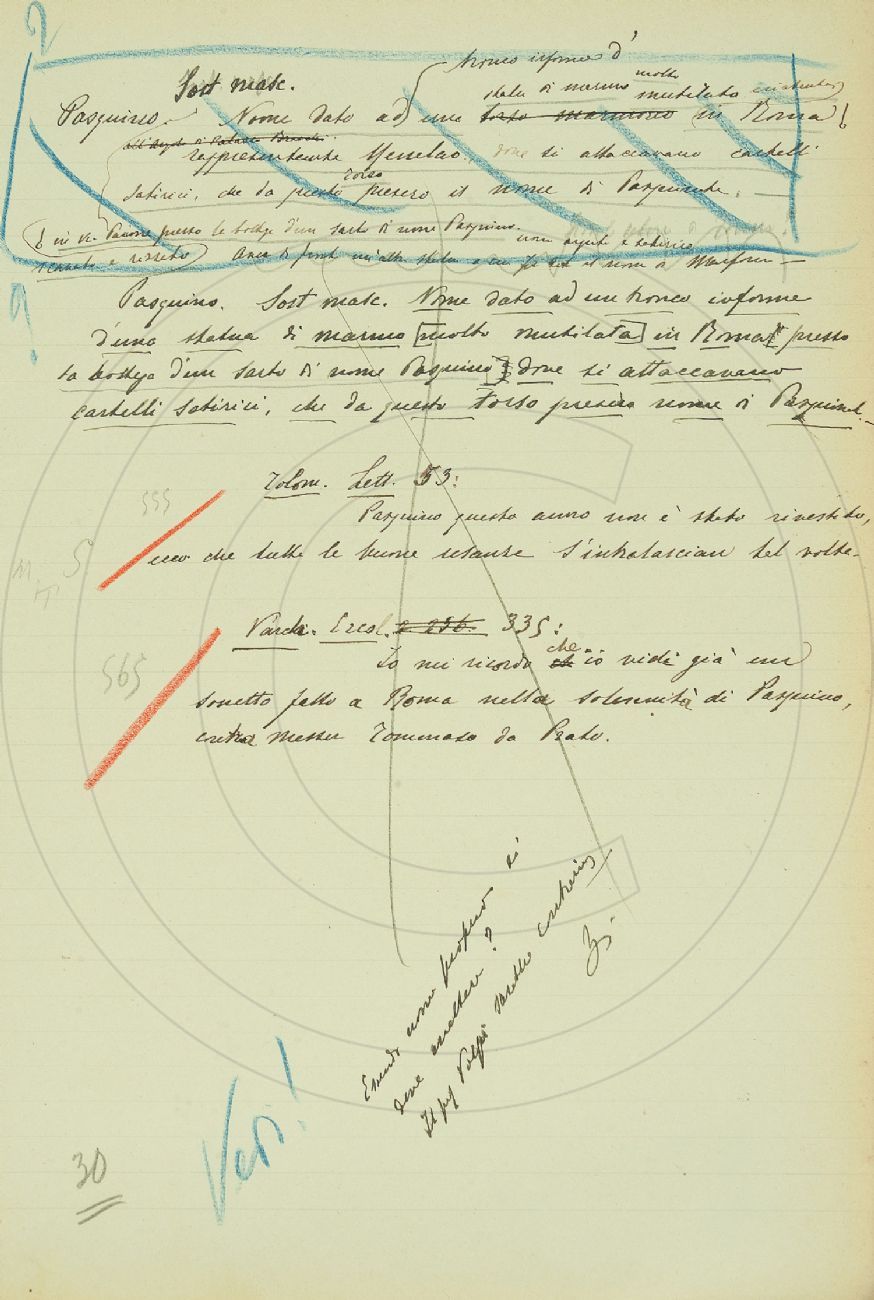 2
Sost masc.
tronco informe d'
statua di marmo molto mutilata
Pasquino. Nome dato ad una torso marmoreo in Roma
all'angolo di Palazzo Braschi
rappresentante Menelao, dove si attaccavano cartelli
satirici, che da questo torso presero il nome di Pasquinate.
in via Pavone presso la bottega d'un sarto di nome Pasquino.
arguto e satirico
di fronte un'altra statua a cui fu dato il nome di Marforio
Pasquino. Sost masc. Nome dato ad un tronco informe
d'una statua di marmo [molto mutilata] in Roma [presso
la bottega d'un sarto di nome Pasquino] dove si attaccavano
cartelli satirici, che da questo torso presero nome di Pasquinate.
Tolom. Lett. 53:
555
Pasquino questo anno non è stato rivestito,
ecco che tutte le buone usanze s'intralascian tal volta.
M. T. S
Varch. Ercol. 2 256. 335:
565
Io mi ricordo che io vidi già un
sonetto fatto a Roma nella solennità di Pasquino,
contra messer Tommaso da Prato.
Essendo nome proprio si
deve ammettere?
sarebbe contrario
Vedi!
30